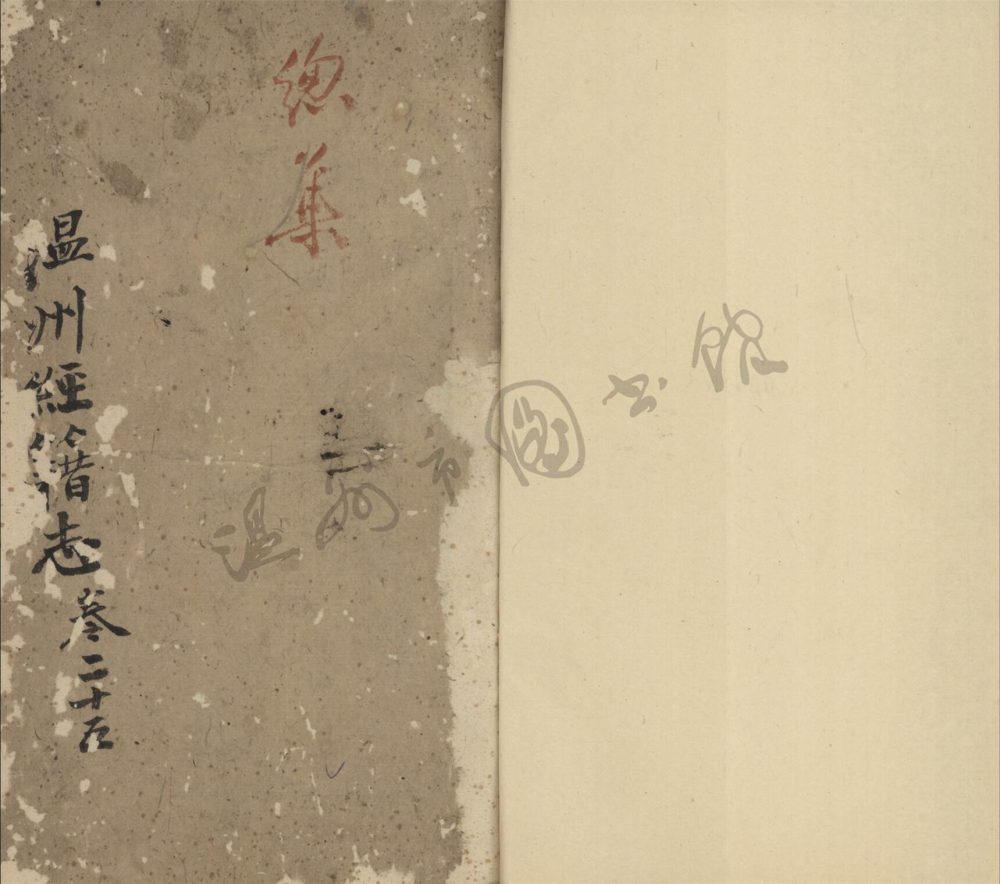 緫集
温州經籍志 卷二十五
温州市圖书館